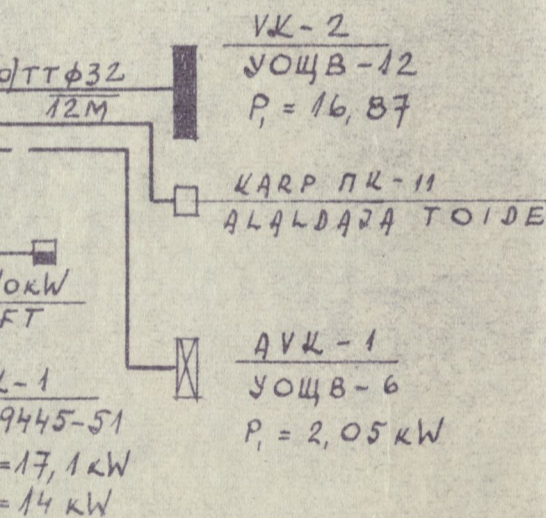 VK-2
УОЩВ-12
P₁ = 16,87
)ТТф32
12М
KARP ПК-11
ALALDAJA TOIDE
0KW
FT
AVK-1
УОЩВ-6
P₁ = 2,05 KW
-1
9445-51
=17,1 KW
=14 KW